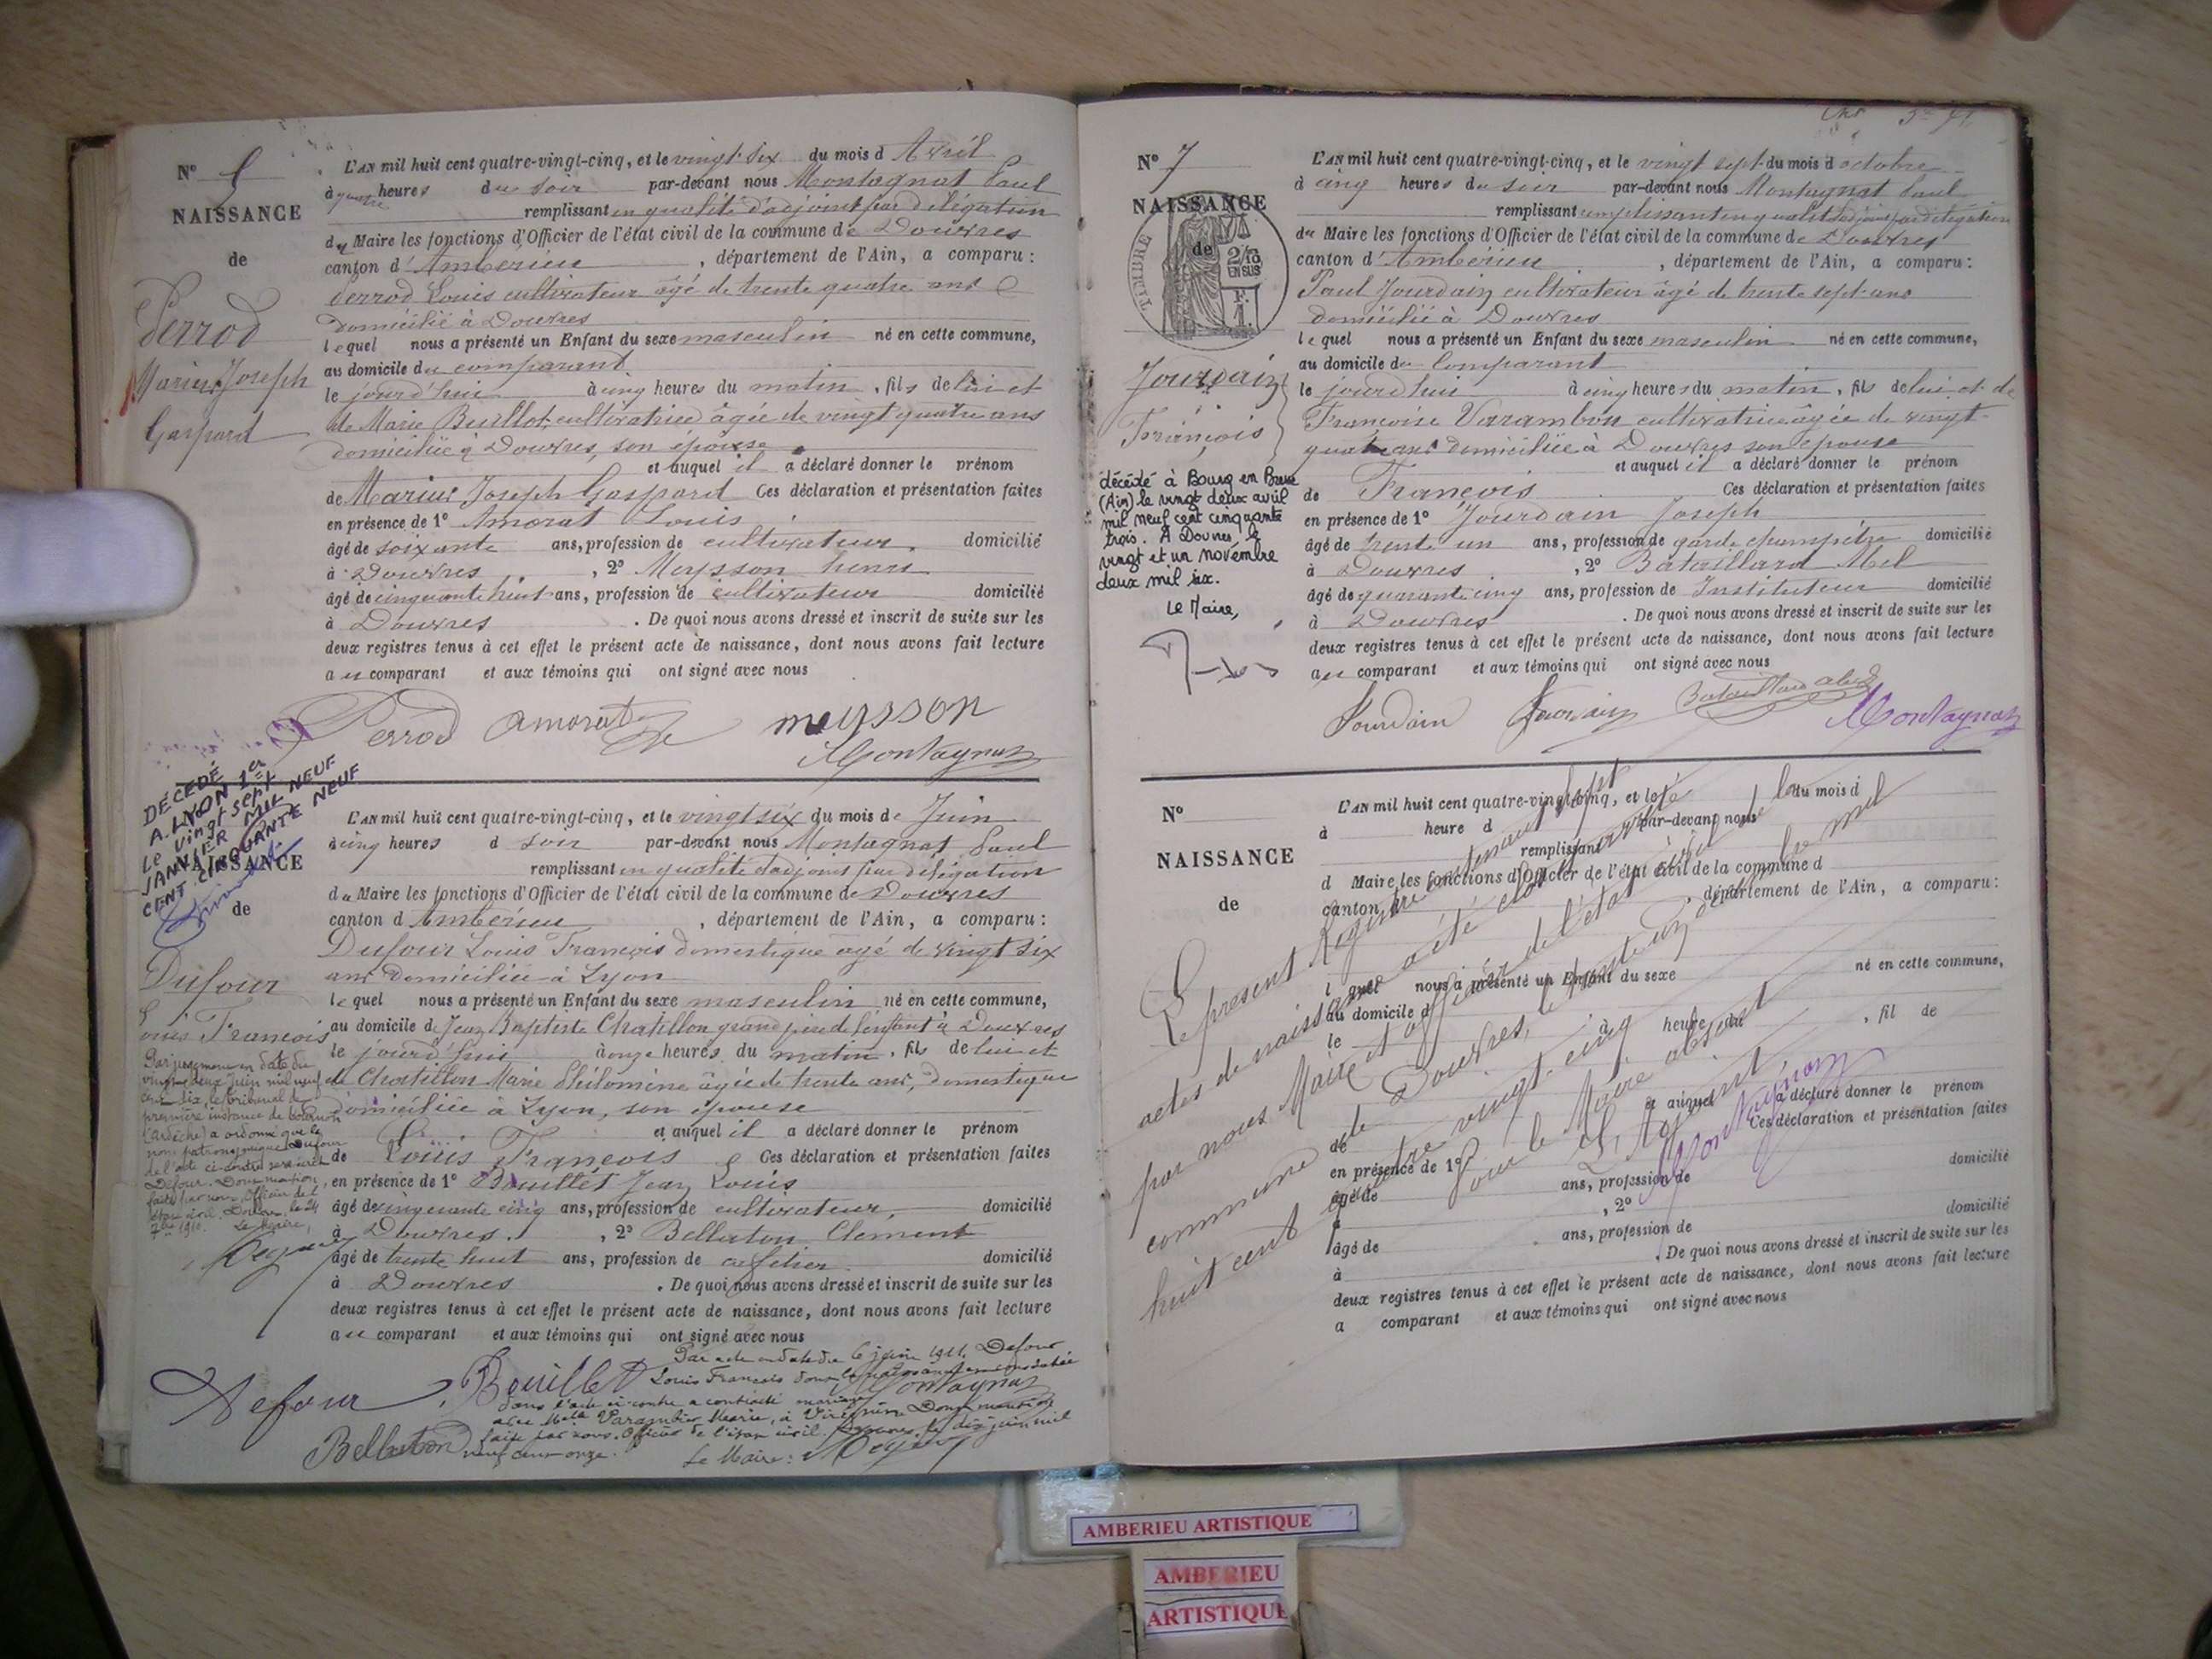 N° 5
NAISSANCE
de
Perrod
Marius Joseph
Gaspard
L'AN mil huit cent quatre-vingt-cinq, et le vingt-six du mois d'Avril
à quatre heures du soir par-devant nous Montagnat Paul
remplissant en qualité d'adjoint par délégation
du Maire les fonctions d'Officier de l'état civil de la commune de Douvres
canton d'Ambérieu, département de l'Ain, a comparu :
Perrod Louis cultivateur âgé de trente quatre ans
domicilié à Douvres
lequel nous a présenté un Enfant du sexe masculin né en cette commune,
au domicile du comparant
le jourd'hui à cinq heures du matin, fils de lui et
de Marie Buillot cultivatrice âgée de vingt quatre ans
domiciliée à Douvres, son épouse
et auquel il a déclaré donner le prénom
de Marius Joseph Gaspard Ces déclaration et présentation faites
en présence de 1° Amorat Louis
âgé de soixante ans, profession de cultivateur, domicilié
à Douvres, 2° Meysson henri
âgé de cinquante huit ans, profession de cultivateur domicilié
à Douvres. De quoi nous avons dressé et inscrit de suite sur les
deux registres tenus à cet effet le présent acte de naissance, dont nous avons fait lecture
au comparant et aux témoins qui ont signé avec nous
Perrod Amorat meysson
Montagnat
DÉCÉDÉ
A. LYON 1er
Le vingt sept
JANVIER MIL NEUF
CENT CINQUANTE NEUF
NAISSANCE
de
Dufour
Louis François
Par jugement en date du
vingt-deux Juin mil neuf
cent dix, le tribunal de
première instance de Tournon
(Ardèche) a ordonné que le
nom patronymique Dufour
de l'acte ci-contre serait écrit
Defour. Dont mention
faite par nous Officier de l'
état civil. Douvres, le 24
7bre 1910. Le Maire,
L'AN mil huit cent quatre-vingt-cinq, et le vingt six du mois de Juin
à cinq heures d soir par-devant nous Montagnat Paul
remplissant en qualité d'adjoint par délégation
du Maire les fonctions d'Officier de l'état civil de la commune de Douvres
canton d'Ambérieu, département de l'Ain, a comparu :
Dufour Louis François domestique âgé de vingt six
ans domiciliée à Lyon
lequel nous a présenté un Enfant du sexe masculin né en cette commune,
au domicile de Jean Baptiste Chatillon grand père de l'enfant à Douvres
le jourd'hui à onze heures du matin, fils de lui et
de Chatillon Marie Philomène âgée de trente ans, domestique
domiciliée à Lyon, son épouse
et auquel il a déclaré donner le prénom
de Louis François Ces déclaration et présentation faites
en présence de 1° Bouillet Jean Louis
âgé de cinquante cinq ans, profession de cultivateur, domicilié
à Douvres, 2° Bellaton Clement
âgé de trente huit ans, profession de cafetier domicilié
à Douvres. De quoi nous avons dressé et inscrit de suite sur les
deux registres tenus à cet effet le présent acte de naissance, dont nous avons fait lecture
au comparant et aux témoins qui ont signé avec nous
Par acte en date du 6 juin 1911, Defour
Louis François dont la naissance est constatée
dans l'acte ci-contre a contracté mariage
avec Melle Varambier Marie, à Dont mention
faite par nous, Officier de l'état civil. Douvres, le dix juin mil
neuf cent onze. Le Maire :
Defour Bouillet Montagnat
Bellaton
N° 7
NAISSANCE
de
TIMBRE
2/10
EN SUS
1 F.
Jourdain
François
décédé à Bourg en Bresse
(Ain) le vingt deux avril
mil neuf cent cinquante
trois. A Douvres, le
vingt et un novembre
deux mil six.
Le Maire,
L'AN mil huit cent quatre-vingt-cinq, et le vingt sept du mois d'octobre
à cinq heures du soir par-devant nous Montagnat Paul
remplissant remplissant en qualité d'adjoint par délégation
du Maire les fonctions d'Officier de l'état civil de la commune de Douvres
canton d'Ambérieu, département de l'Ain, a comparu :
Paul Jourdain cultivateur âgé de trente sept ans
domicilié à Douvres
lequel nous a présenté un Enfant du sexe masculin né en cette commune,
au domicile du Comparant
le jourd'hui à cinq heures du matin, fils de lui et de
Françoise Varambon cultivatrice âgée de vingt-
quatre ans domiciliée à Douvres son épouse
et auquel il a déclaré donner le prénom
de François Ces déclaration et présentation faites
en présence de 1° Jourdain Joseph
âgé de trente un ans, profession de garde champêtre domicilié
à Douvres, 2° Bataillard Abel
âgé de quarante cinq ans, profession de Instituteur domicilié
à Douvres. De quoi nous avons dressé et inscrit de suite sur les
deux registres tenus à cet effet le présent acte de naissance, dont nous avons fait lecture
au comparant et aux témoins qui ont signé avec nous
Jourdain Jourdain Bataillard abel
Montagnat
N°
NAISSANCE
de
L'AN mil huit cent quatre-vingt-cinq, et le du mois d
à heure d par-devant nous
remplissant
d Maire les fonctions d'Officier de l'état civil de la commune d
canton d, département de l'Ain, a comparu :
l quel nous a présenté un Enfant du sexe né en cette commune,
au domicile d
le à heure du, fil de
et auquel a déclaré donner le prénom
de Ces déclaration et présentation faites
en présence de 1°
âgé de ans, profession de domicilié
à, 2°
âgé de ans, profession de domicilié
à. De quoi nous avons dressé et inscrit de suite sur les
deux registres tenus à cet effet le présent acte de naissance, dont nous avons fait lecture
a comparant et aux témoins qui ont signé avec nous
Le présent Registre contenant sept
actes de naissance a été clos et arrêté
par nous Maire et officier de l'état civil de la
commune de Douvres, le trente un décembre mil
huit cent quatre vingt-cinq
Pour le Maire absent
L'Adjoint
Montagnat
AMBERIEU ARTISTIQUE
AMBERIEU
ARTISTIQUE